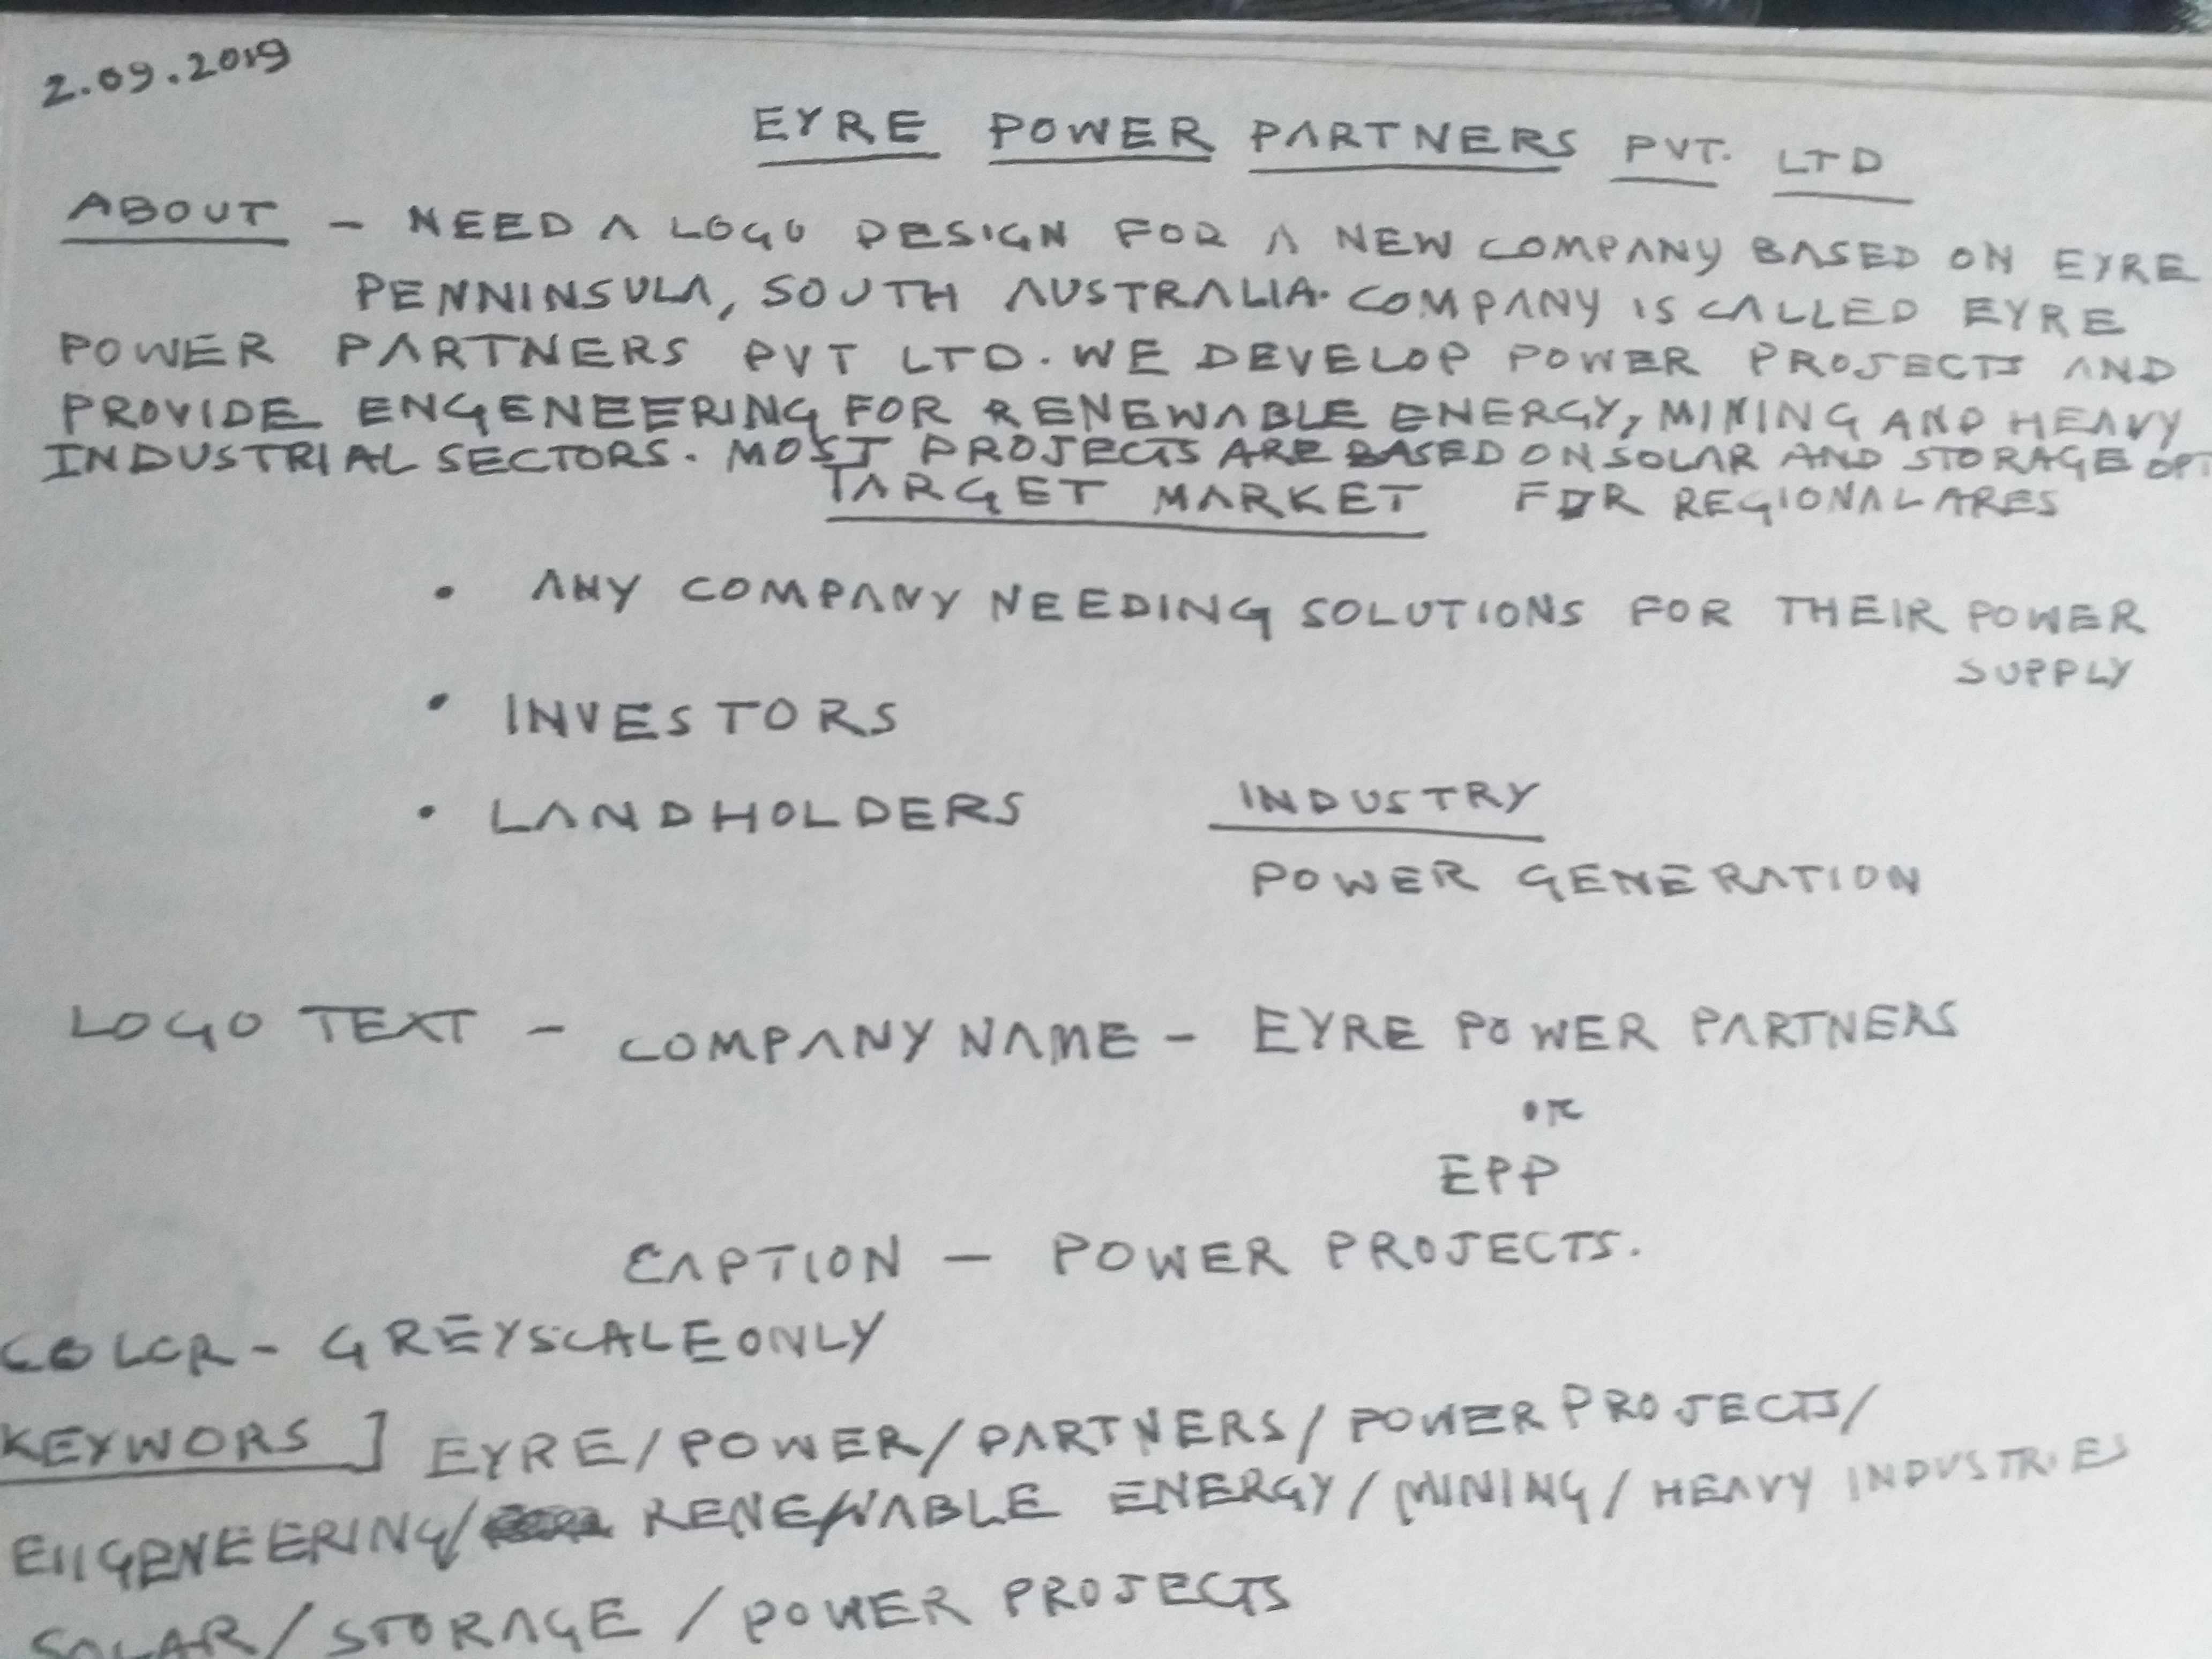 2.09.2019
EYRE POWER PARTNERS PVT. LTD
ABOUT - NEED A LOGO DESIGN FOR A NEW COMPANY BASED ON EYRE
PENNINSULA, SOUTH AUSTRALIA. COMPANY IS CALLED EYRE
POWER PARTNERS PVT LTD. WE DEVELOP POWER PROJECTS AND
PROVIDE ENGENEERING FOR RENEWABLE ENERGY, MINING AND HEAVY
INDUSTRIAL SECTORS. MOST PROJECTS ARE BASED ON SOLAR AND STORAGE OPT
TARGET MARKET FOR REGIONAL ARES
• ANY COMPANY NEEDING SOLUTIONS FOR THEIR POWER
SUPPLY
• INVESTORS
• LANDHOLDERS
INDUSTRY
POWER GENERATION
LOGO TEXT - COMPANY NAME - EYRE POWER PARTNERS
or
EPP
CAPTION - POWER PROJECTS.
COLOR - GREYSCALE ONLY
KEYWORS ] EYRE/POWER/PARTNERS/POWER PROJECTS/
ENGENEERING/ RENEWABLE ENERGY/MINING/HEAVY INDUSTRIES
SOLAR/STORAGE/POWER PROJECTS